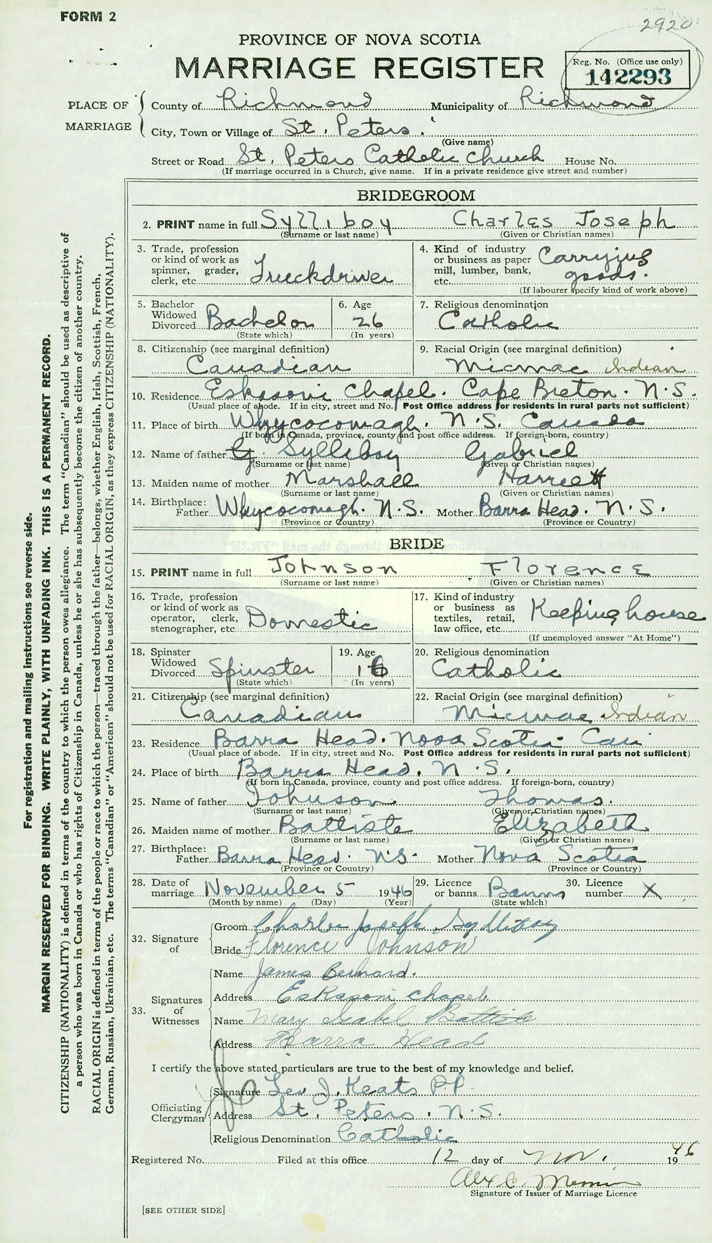 FORM 2
2920
PROVINCE OF NOVA SCOTIA
MARRIAGE REGISTER
Reg. No. (Office use only)
142293
PLACE OF MARRIAGE
County of Richmond Municipality of Richmond
City, Town or Village of St. Peters.
(Give name)
Street or Road St. Peters Catholic Church House No.
(If marriage occurred in a Church, give name. If in a private residence give street and number)
BRIDEGROOM
2. PRINT name in full Sylliboy Charles Joseph
(Surname or last name) (Given or Christian names)
3. Trade, profession or kind of work as spinner, grader, clerk, etc. Truckdriver
4. Kind of industry or business as paper mill, lumber, bank, etc. Carrying goods.
(If labourer specify kind of work above)
5. Bachelor Widowed Divorced Bachelor
(State which)
6. Age 26
(In years)
7. Religious denomination
Catholic
8. Citizenship (see marginal definition)
Canadian
9. Racial Origin (see marginal definition)
Micmac Indian
10. Residence Eskasoni Chapel. Cape Breton. N.S.
(Usual place of abode. If in city, street and No. Post Office address for residents in rural parts not sufficient)
11. Place of birth Whycocomagh. N.S. Canada
(If born in Canada, province, county and post office address. If foreign-born, country)
12. Name of father G. Sylliboy Gabriel
(Surname or last name) (Given or Christian names)
13. Maiden name of mother Marshall Harriett
(Surname or last name) (Given or Christian names)
14. Birthplace: Father Whycocomagh. N.S. Mother Barra Head. N.S.
(Province or Country) (Province or Country)
BRIDE
15. PRINT name in full Johnson Florence
(Surname or last name) (Given or Christian names)
16. Trade, profession or kind of work as operator, clerk, stenographer, etc Domestic
17. Kind of industry or business as textiles, retail, law office, etc. Keeping house
(If unemployed answer "At Home")
18. Spinster Widowed Divorced Spinster
(State which)
19. Age 16
(In years)
20. Religious denomination
Catholic
21. Citizenship (see marginal definition)
Canadian
22. Racial Origin (see marginal definition)
Micmac Indian
23. Residence Barra Head. Nova Scotia. Can
(Usual place of abode. If in city, street and No. Post Office address for residents in rural parts not sufficient)
24. Place of birth Barra Head. N.S.
(If born in Canada, province, county and post office address. If foreign-born, country)
25. Name of father Johnson Thomas.
(Surname or last name) (Given or Christian names)
26. Maiden name of mother Battiste Elizabeth
(Surname or last name) (Given or Christian names)
27. Birthplace: Father Barra Head. N.S. Mother Nova Scotia
(Province or Country) (Province or Country)
28. Date of marriage November 5 1946
(Month by name) (Day) (Year)
29. Licence or banns Banns
(State which)
30. Licence number X
32. Signature of
Groom Charles Joseph Sylliboy
Bride Florence Johnson
33. Signatures of Witnesses
Name James Bernard.
Address Eskasoni chapel
Name Mary Isabel Battiste
Address Barra Head
I certify the above stated particulars are true to the best of my knowledge and belief.
Officiating Clergyman
Signature Leo J. Keats P.P.
Address St. Peters. N.S.
Religious Denomination Catholic
Registered No. Filed at this office 12 day of Nov. 1946
Alex C.
Signature of Issuer of Marriage Licence
[SEE OTHER SIDE]
For registration and mailing instructions see reverse side.
MARGIN RESERVED FOR BINDING. WRITE PLAINLY, WITH UNFADING INK. THIS IS A PERMANENT RECORD.
CITIZENSHIP (NATIONALITY) is defined in terms of the country to which the person owes allegiance. The term "Canadian" should be used as descriptive of
a person who was born in Canada or who has rights of Citizenship in Canada, unless he or she has subsequently become the citizen of another country.
RACIAL ORIGIN is defined in terms of the people or race to which the person—traced through the father—belongs, whether English, Irish, Scottish, French,
German, Russian, Ukrainian, etc. The terms "Canadian" or "American" should not be used for RACIAL ORIGIN, as they express CITIZENSHIP (NATIONALITY).